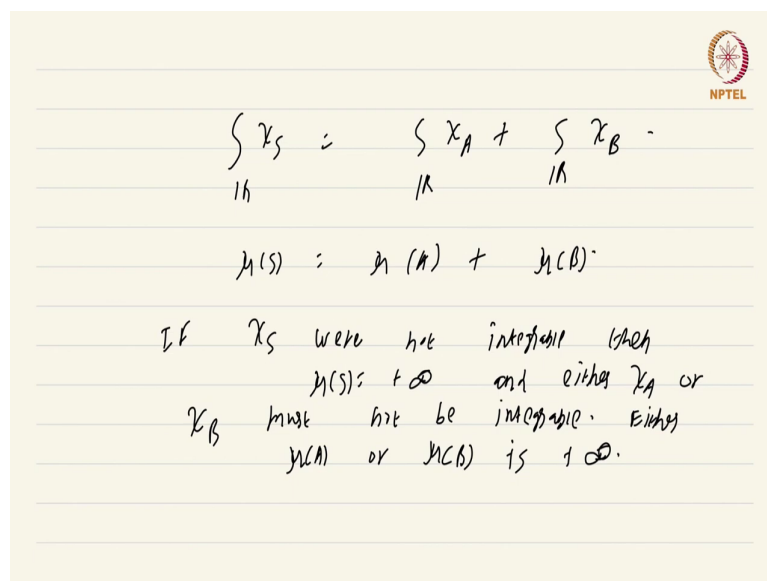 NPTEL
∫ χ_S = ∫ χ_A + ∫ χ_B .
ℝ ℝ ℝ
μ(S) = μ(A) + μ(B).
If χ_S were not integrable then
μ(S) = +∞ and either χ_A or
χ_B must not be integrable. Either
μ(A) or μ(B) is +∞.